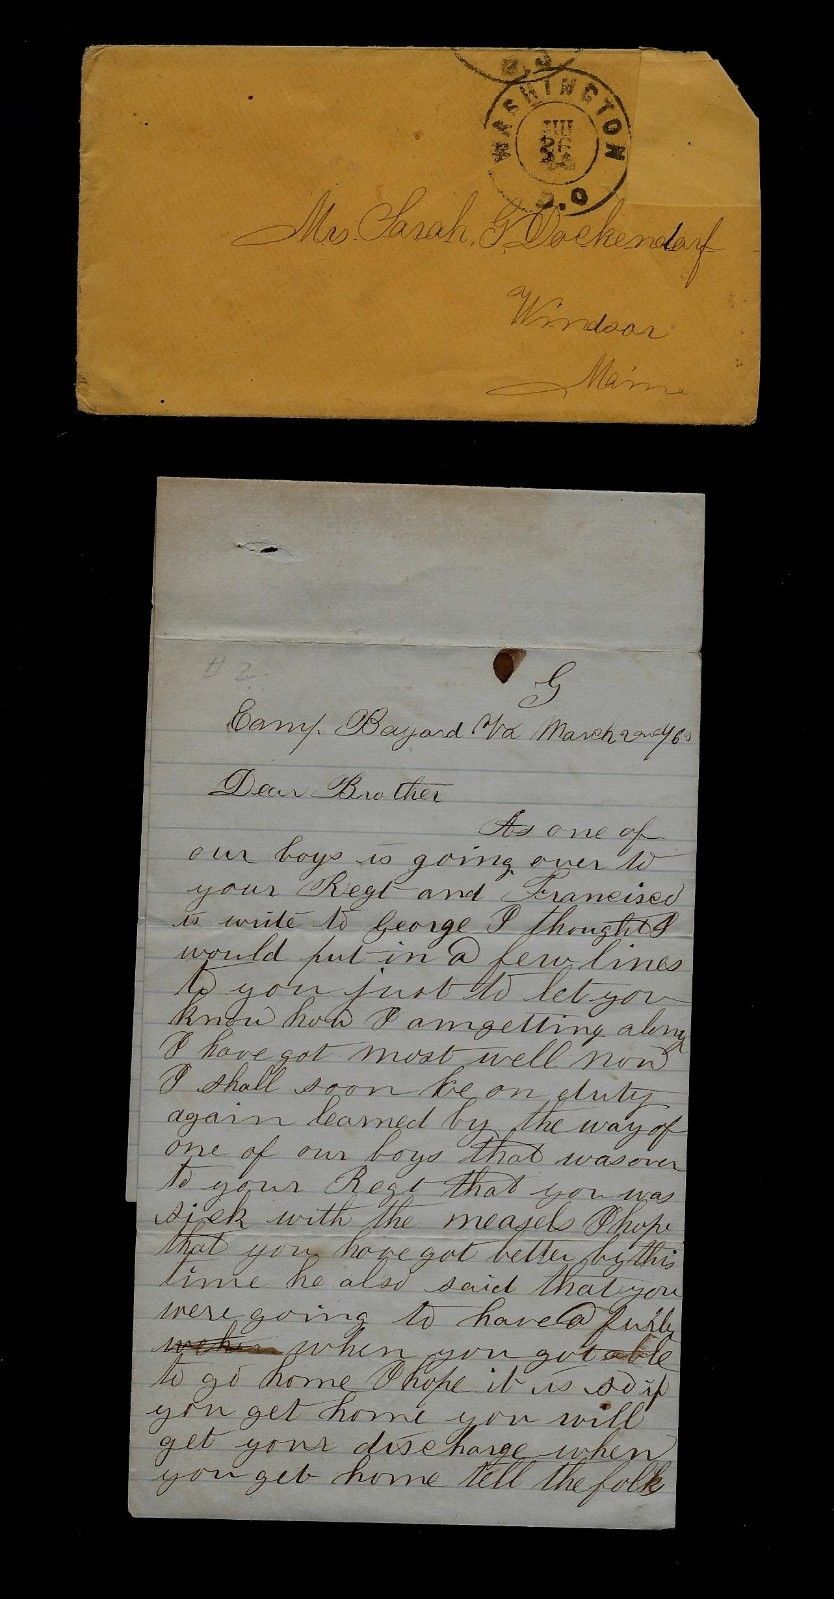 WASHINGTON
D.C
Mrs. Sarah. G. Dockendorf
Windsor
Maine
#2.
G
Camp. Bayard Va March 2nd
Dear Brother
As one of
our boys is going over to
your Regt and Francisco
is write to George I thought I
would put in a few lines
to you just to let you
know how I am getting along
I have got most well now
I shall soon be on duty
again learned by the way of
one of our boys that was over
to your Regt that you was
sick with the measels I hope
that you have got better by this
time he also said that you
were going to have a furlo
when you got able
to go home I hope it is so if
you get home you will
get your discharge when
you get home tell the folk